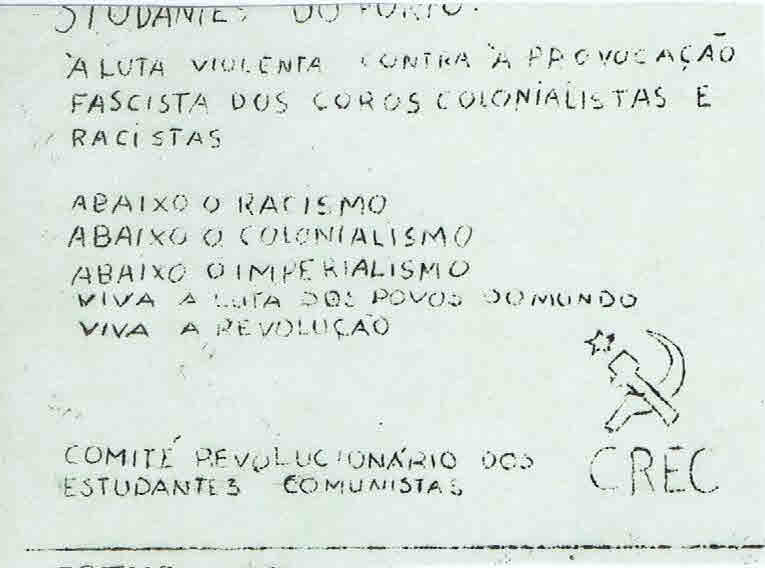 STUDANTES DO PORTO:
À LUTA VIOLENTA CONTRA A PROVOCAÇÃO
FASCISTA DOS COROS COLONIALISTAS E
RACISTAS
ABAIXO O RACISMO
ABAIXO O COLONIALISMO
ABAIXO O IMPERIALISMO
VIVA A LUTA DOS POVOS DO MUNDO
VIVA A REVOLUÇÃO
COMITÉ REVOLUCIONÁRIO DOS
ESTUDANTES COMUNISTAS
CREC